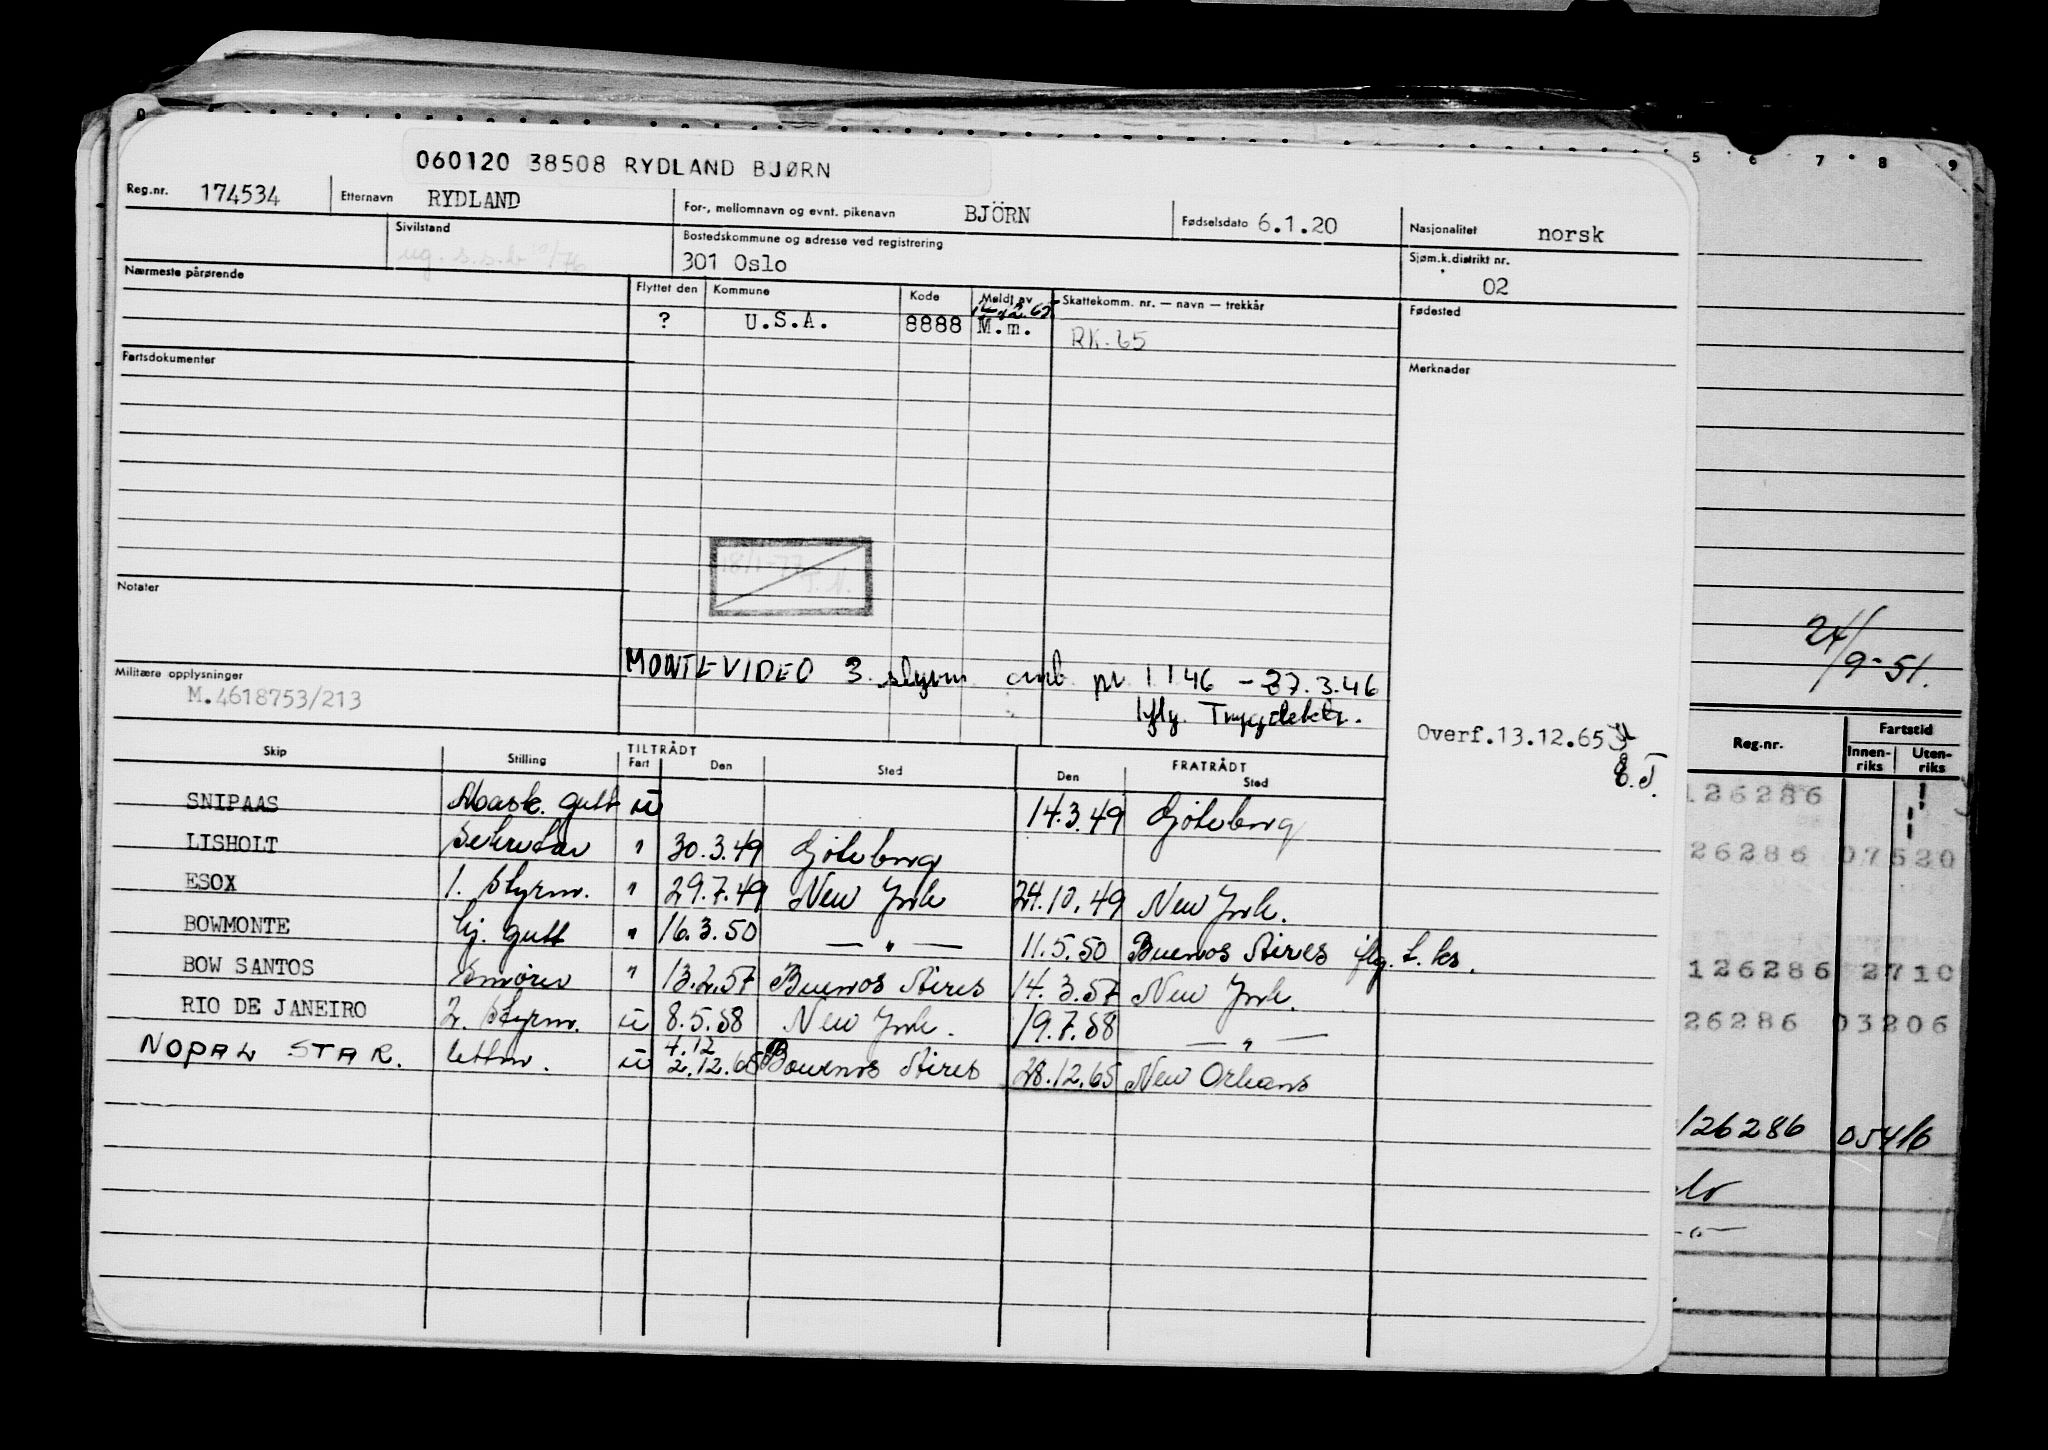 060120 38508 RYDLAND BJØRN
Reg.nr. 174534 Etternavn RYDLAND For-, mellomnavn og evnt. pikenavn BJÖRN Fødselsdato 6.1.20 Nasjonalitet norsk
Sivilstand ug. s.s.b 10/76 Bostedskommune og adresse ved registrering 301 Oslo Sjøm.k.distrikt nr. 02
Nærmeste pårørende Flyttet den Kommune Kode Meldt av Skattekomm. nr. — navn — trekkår Fødested
? U.S.A. 8888 M.m. RK.65
Fartsdokumenter Merknader
18/1-77
Notater
MONTEVIDEO 3. styrm. omb. pr 1 1 46 - 27.3.46
Militære opplysninger
M.4618753/213
iflg. Trygdektr.
Overf.13.12.65
E.T.
Skip Stilling TILTRÅDT Fart Den Sted FRATRÅDT Den Sted
SNIPAAS Mask. gutt u 14.3.49 Göteborg
LISHOLT " 30.3.49 Göteborg
ESOX 1. Styrm. " 29.7.49 New York 24.10.49 New York.
BOWMONTE bj. gutt " 16.3.50 — " — 11.5.50 Buenos Aires iflg. t. ks.
BOW SANTOS Smører " 13.2.57 Buenos Aires 14.3.57 New York.
RIO DE JANEIRO 2. Styrm. u 8.5.58 New York. 19.7.58 — " —
4.12
NOPAL STAR. lettm. u 2.12.65 Bouenos Aires 28.12.65 New Orleans
5 6 7 8 9
24/9-51.
Reg.nr. Fartstid
Innen-riks Uten-riks
126286
26286 07520
126286 2710
26286 03206
126286 05416